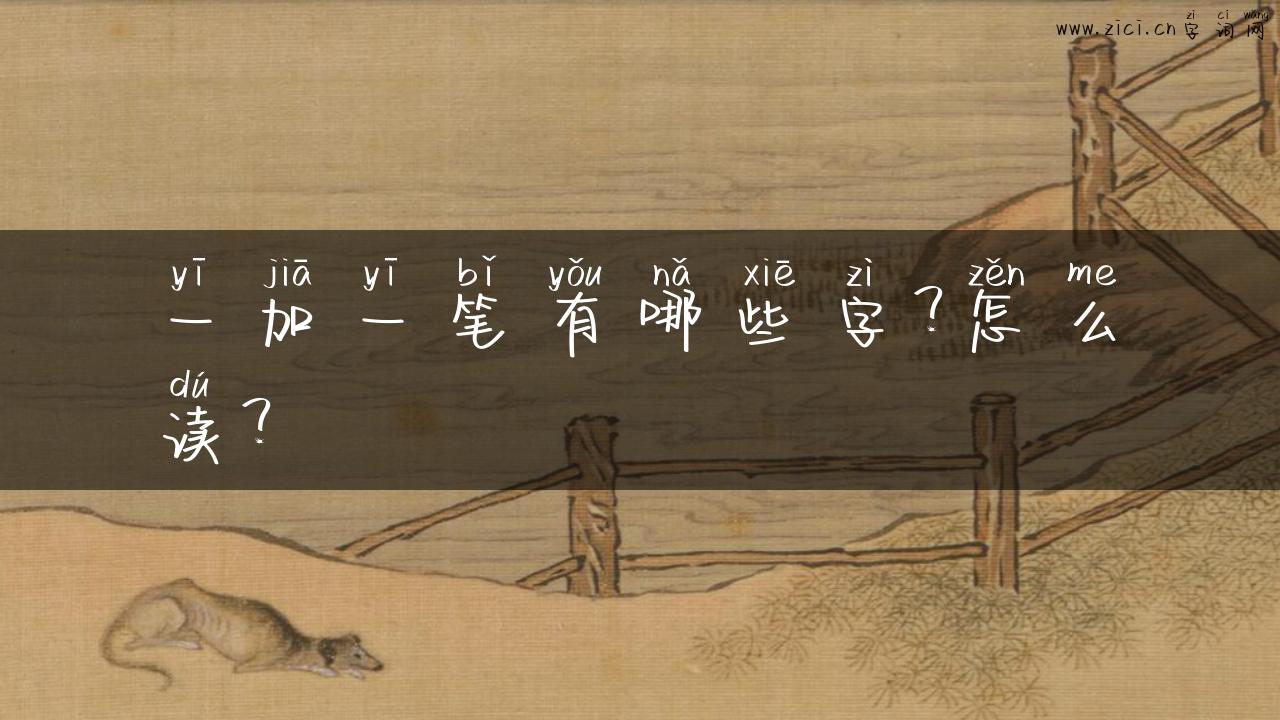 zì cí wǎng
www.zici.cn字词网
yī jiā yī bǐ yǒu nǎ xiē zì zěn me
一加一笔有哪些字?怎么
dú
读?